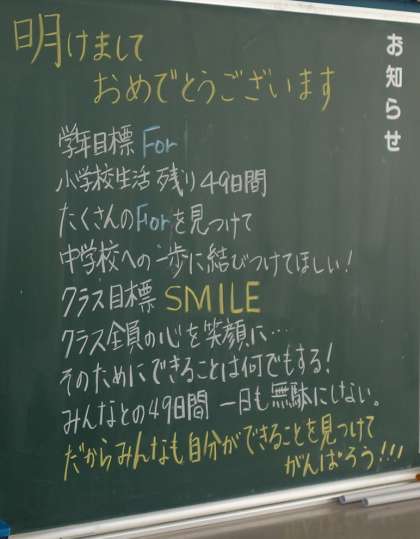 お知らせ
明けまして
おめでとうございます
学年目標 For
小学校生活 残り49日間
たくさんのForを見つけて
中学校への一歩に結びつけてほしい!
クラス目標 SMILE
クラス全員の心を笑顔に…
そのためにできることは何でもする!
みんなとの49日間 一日も無駄にしない。
だからみんなも自分ができることを見つけて
がんばろう!!!